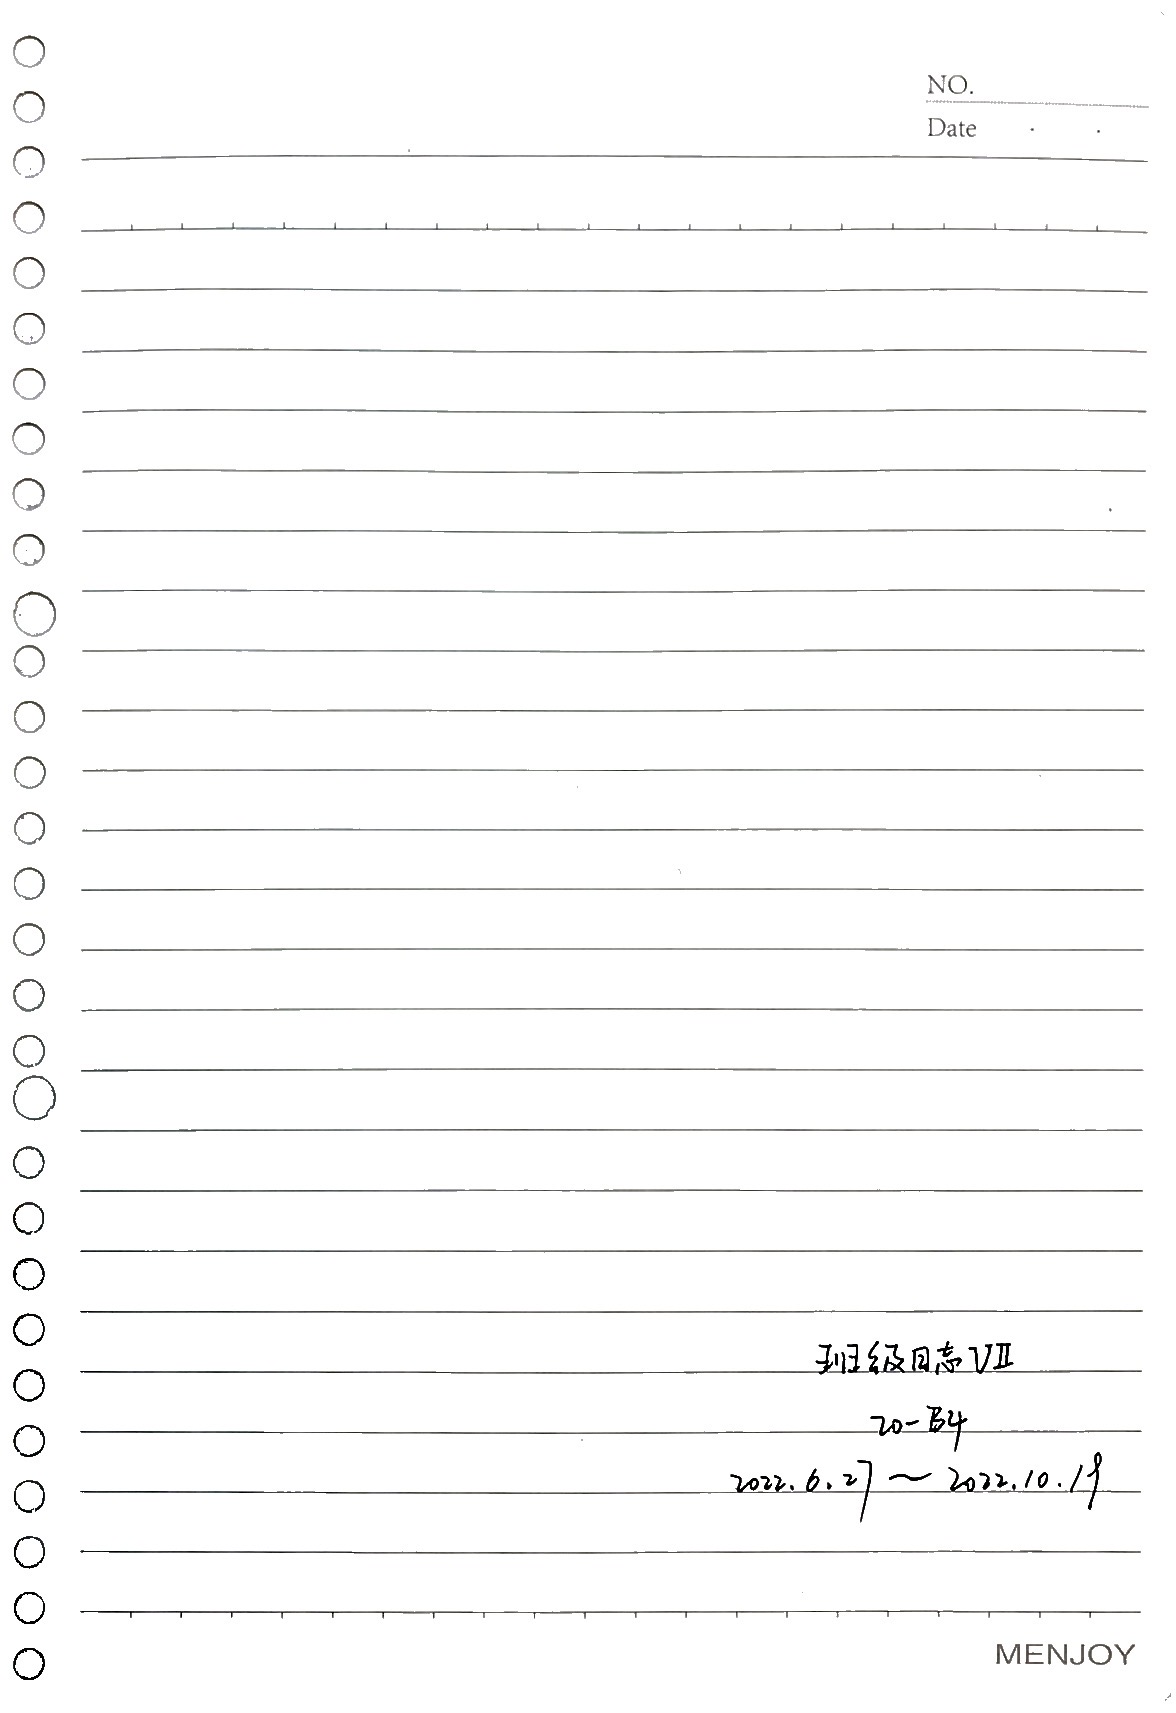 NO.
Date . .
班级日志VII
20-B4
2022.6.27～2022.10.19
MENJOY